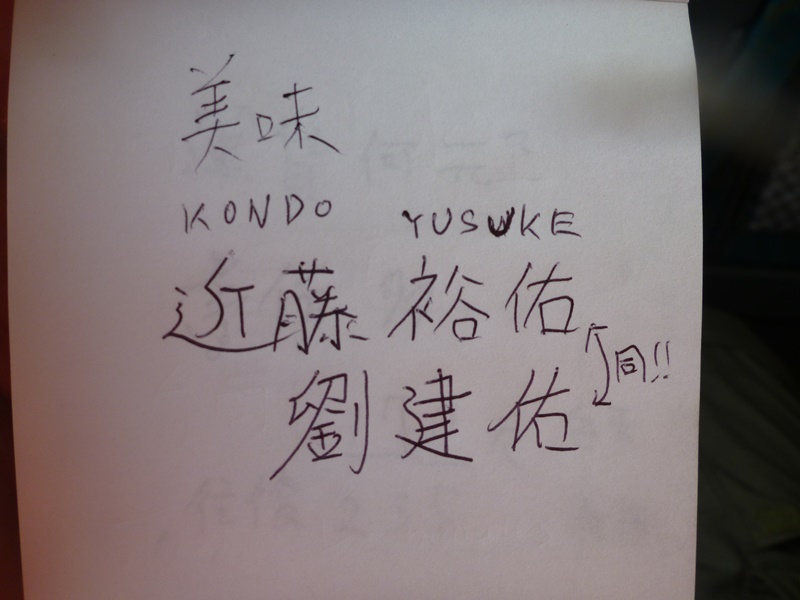 美味
KONDO YUSUKE
近藤 裕佑
同!!
劉建佑